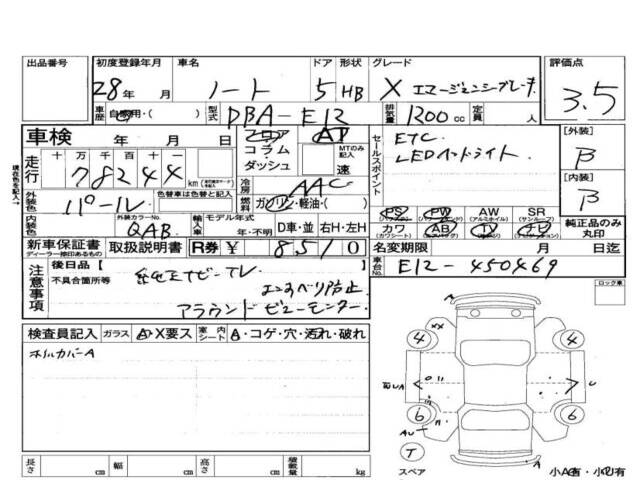 出品番号
初度登録年月
28年 月
車名
ノート
ドア
5
形状
HB
グレード
X エマージェンシーブレーキ
評価点
3.5
車歴
自家用・( )
型式
DBA-E12
排気量
1200cc
定員
人
車検 年 月 日
フロア
コラム・
ダッシュ
AT
MTのみ記入
速
セールスポイント
ETC
LEDヘッドライト
[外装]
B
[内装]
B
走行
十 万 千 百 十 一
78244
km
冷房
AAC
外装色
パール
色替車は色替と記入
燃料
ガソリン・軽油・( )
内装色
外装カラーNo.
QAB
輸入車
モデル年式
年・不明
D車・並
右H・左H
PS
PW
AW
(アルミホイル)
SR
(サンルーフ)
カワ
(カワシート)
AB
TV
ナビ
純正品のみ
丸印
新車保証書
ディーラー捺印あるもの
取扱説明書
R券 ¥ 8510
名変期限 月 日迄
注意事項
後日品【 】
不具合箇所等
アラウンドビューモニター
車台No.
E12-450469
ロック車
検査員記入
ガラス
A・X要ス
室内シート
A・コゲ・穴・汚れ・破れ
ホイルカバーA
4
4
6
6
T
スペア
A
小A有・小U有
長さ cm
幅 cm
高さ cm
積載量 kg